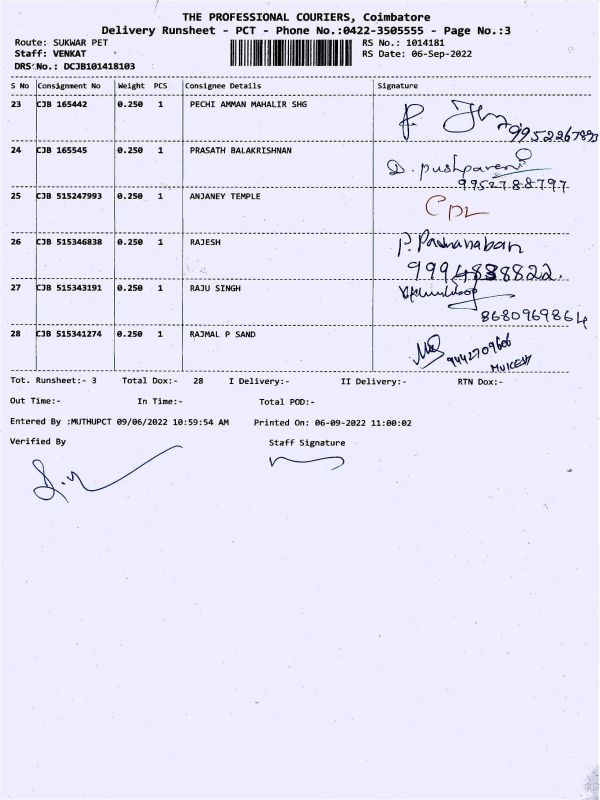 THE PROFESSIONAL COURIERS, Coimbatore
Delivery Runsheet - PCT - Phone No.:0422-3505555 - Page No.:3
Route: SUKWAR PET RS No.: 1014181
Staff: VENKAT RS Date: 06-Sep-2022
DRS No.: DCJB101418103
S No Consignment No Weight PCS Consignee Details Signature
23 CJB 165442 0.250 1 PECHI AMMAN MAHALIR SHG
9952267893
24 CJB 165545 0.250 1 PRASATH BALAKRISHNAN
D. pushpaveni
9952788797
25 CJB 515247993 0.250 1 ANJANEY TEMPLE CPL
26 CJB 515346838 0.250 1 RAJESH P. Padmanaban
9994838822.
27 CJB 515343191 0.250 1 RAJU SINGH
8680969864
28 CJB 515341274 0.250 1 RAJMAL P SAND
9442709606
MUKESH
Tot. Runsheet:- 3 Total Dox:- 28 I Delivery:- II Delivery:- RTN Dox:-
Out Time:- In Time:- Total POD:-
Entered By :MUTHUPCT 09/06/2022 10:59:54 AM Printed On: 06-09-2022 11:00:02
Verified By Staff Signature